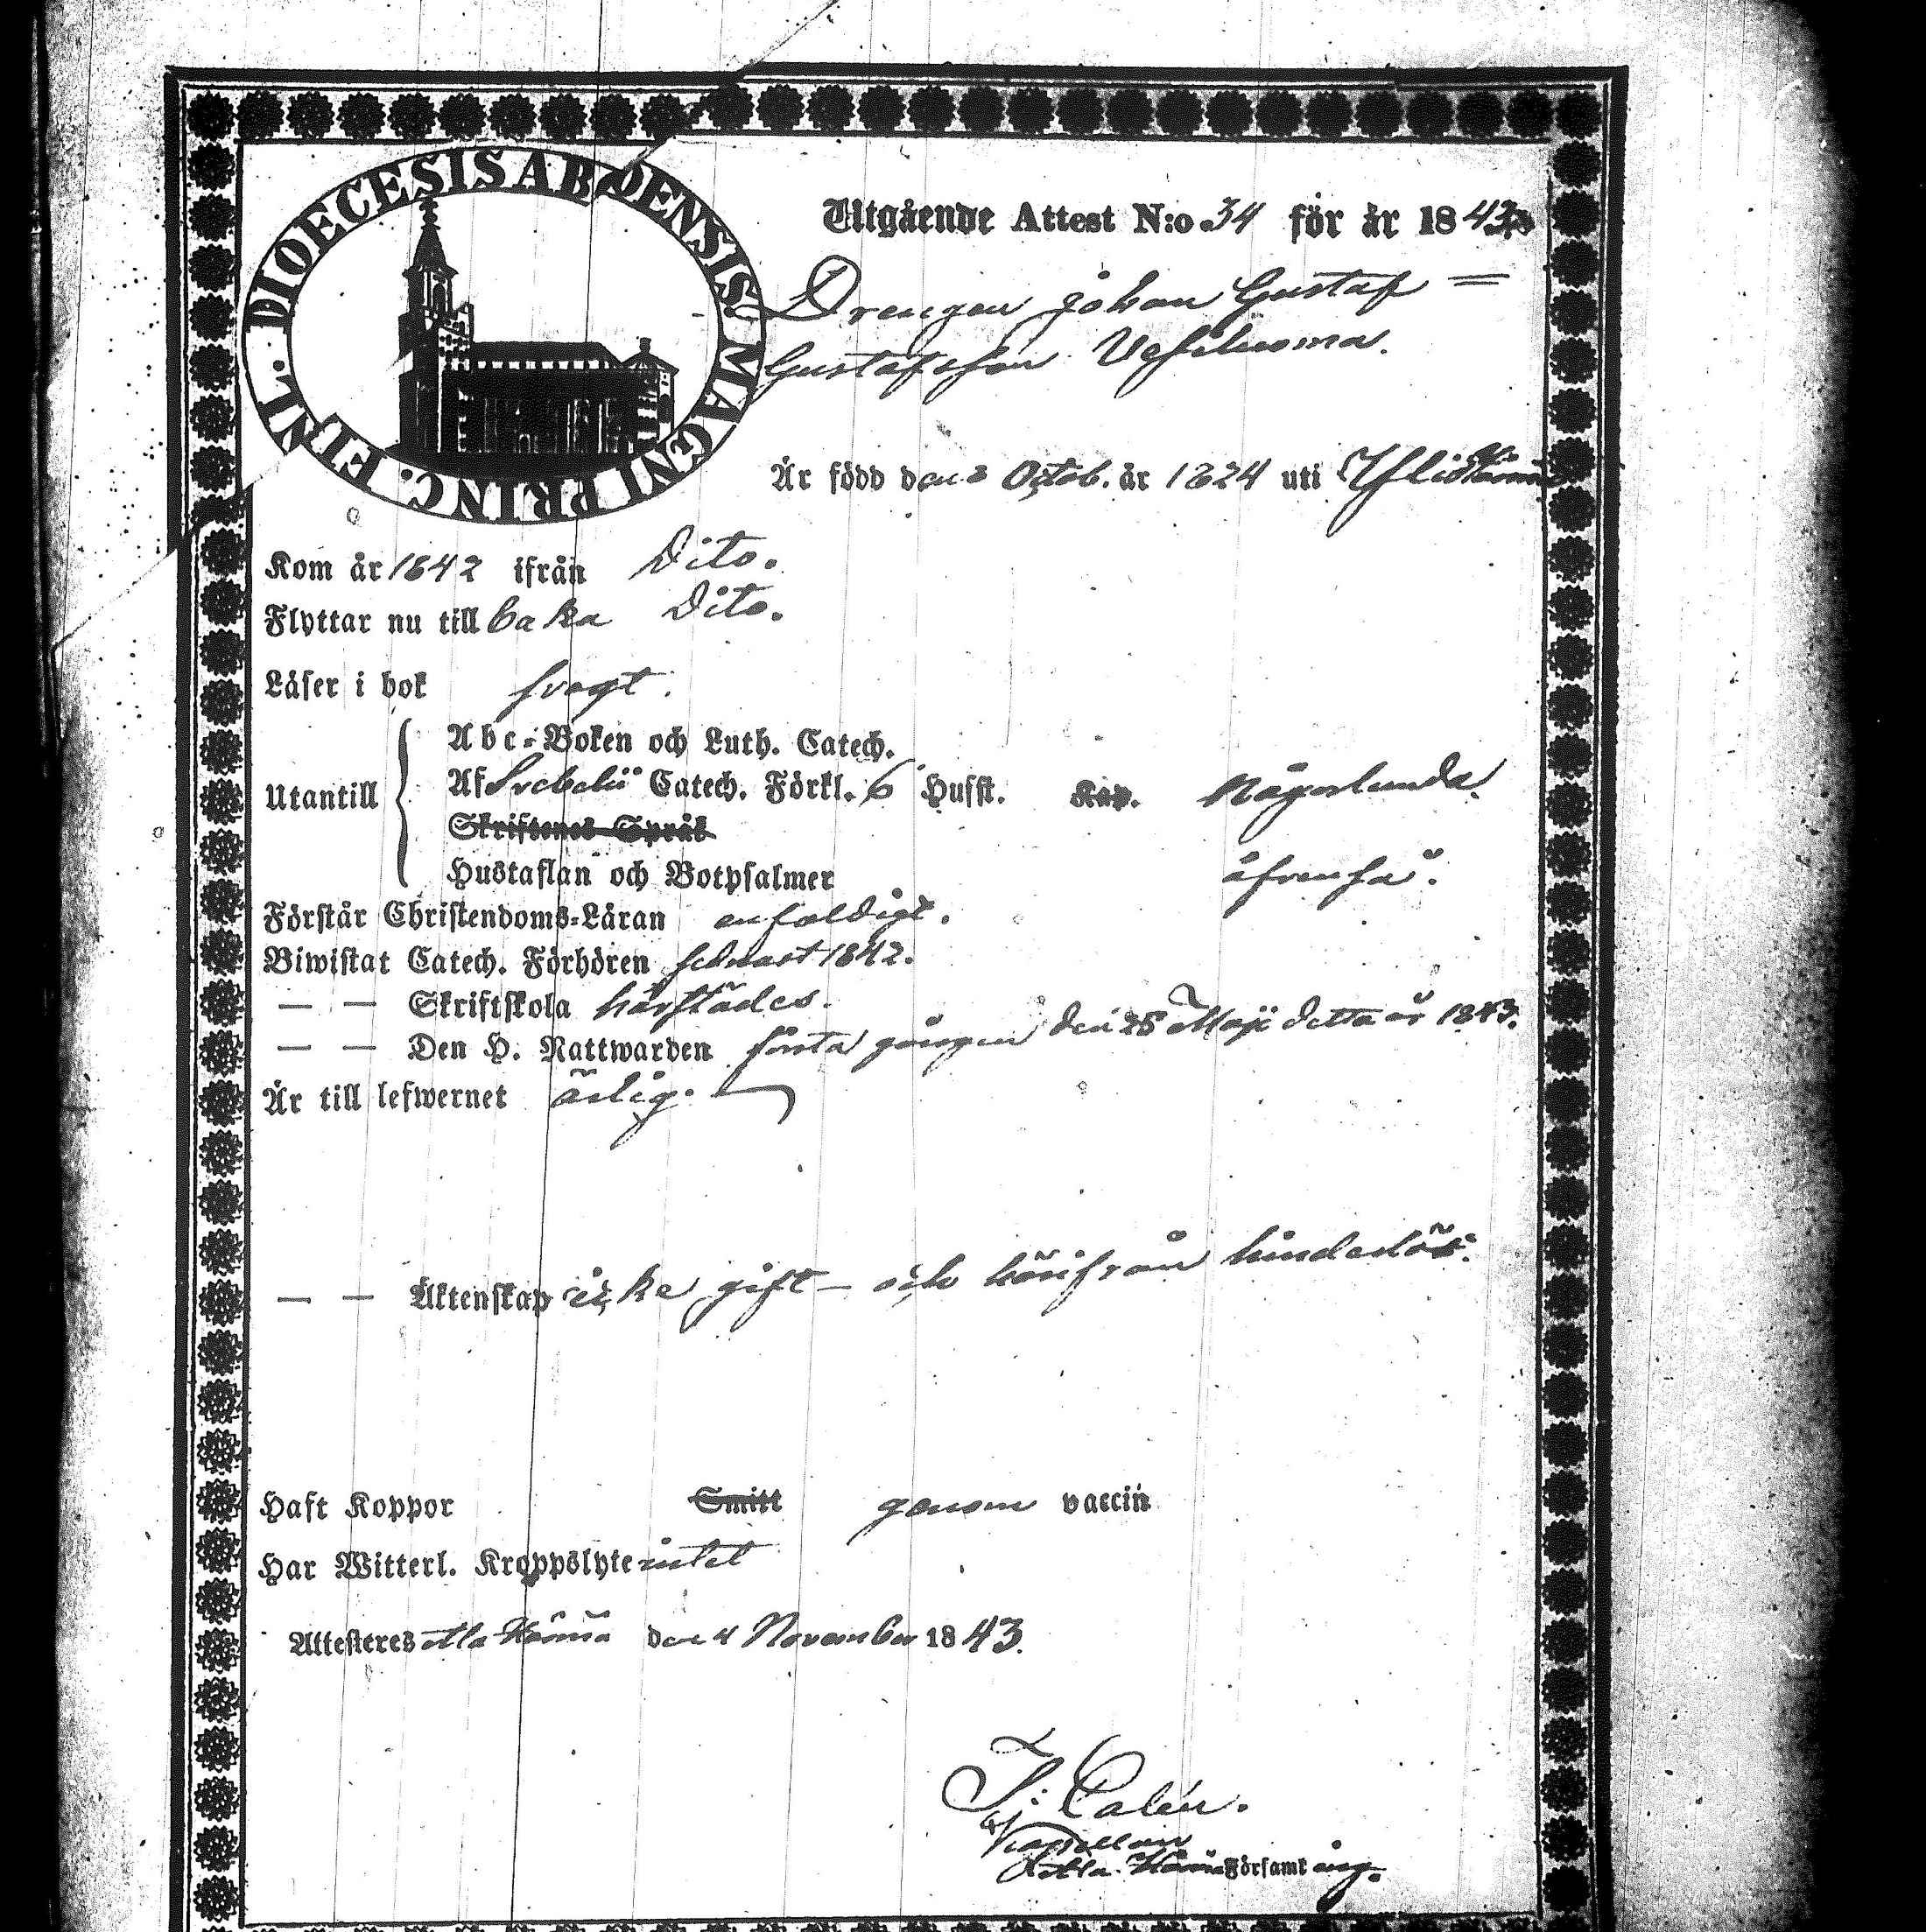 DIOECESIS ABOENSIS MAGNI PRINC. FINL.
Utgående Attest N:o 34 för år 1843
Drengen Johan Gustaf =
Gustafsson
Är född den 3 Octob. år 1824 uti
Kom år 1842 ifrån Dito.
Flyttar nu till baka Dito.
Läser i bok svagt.
Abc-Boken och Luth. Catech.
Utantill Af Svebelii Catech. Förkl. 6 Husst. Kap. Någorlunda.
Skriftenes Språk
Hustaflan och Botpsalmer äfvenså.
Förstår Christendoms-Läran enfaldigt.
Biwistat Catech. Förhören sednast 1842.
— — Skriftskola härstädes.
— — Den H. Nattwarden första gången den 28 Maji detta år 1843.
Är till lefwernet ärlig.
— — Äktenskap icke gift – och härifrån hinderlös.
Haft Koppor Smitt genom vaccin
Har Witterl. Kroppslyte intet
Attesteres den 4 November 1843.
Calén.
Capellan
Församl ing.